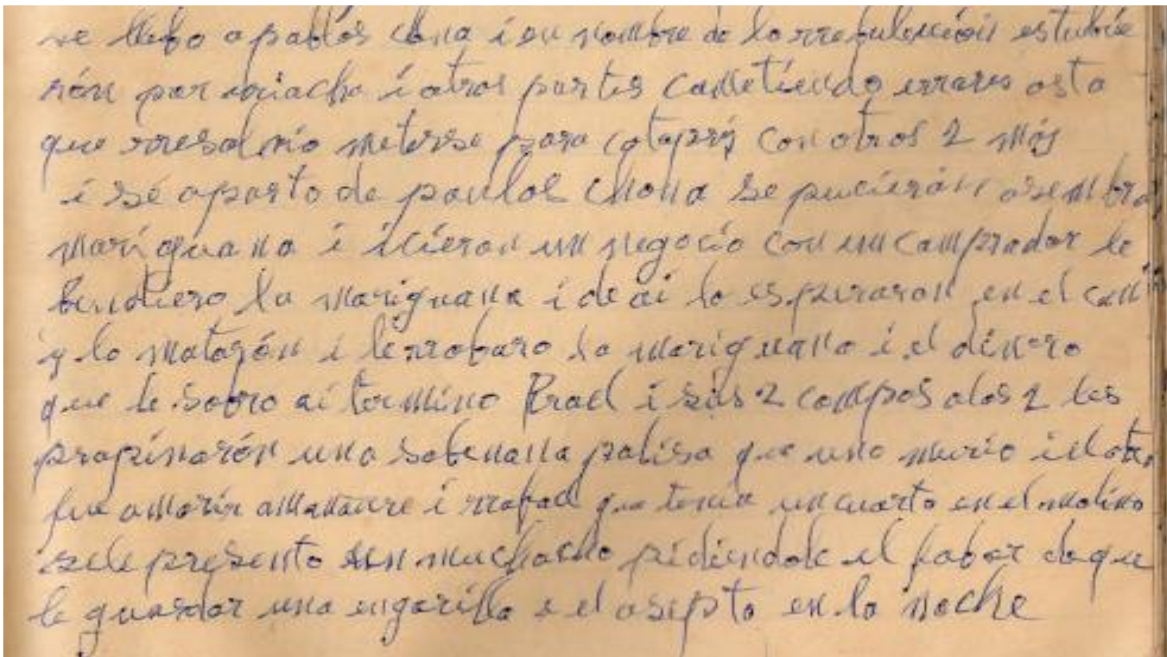 se llebo a pablos chona i en nombre de la rrebulucion estubie
rón por riacho i otros partes cometiendo errares asta
que rresolvio meterse para con otros 2 más
i sé aparto de paulos chona se pucierón a sembra
mariguana i icieron un negocio con un camprador le
bendiero la mariguana i de ai lo espiraron en el cami
y lo matarón i le rrobaro la mariguana i el dinero
que le sobro ai termino i sus 2 compas a los 2 les
propinarón una sobenana palisa que uno murio i el otro
fue a morir a manaure i rrafael que tenia un cuarto en el molino
se le presento un muchacho pidiendole el fabor de que
le guardar una engarilla e el asepto en la noche